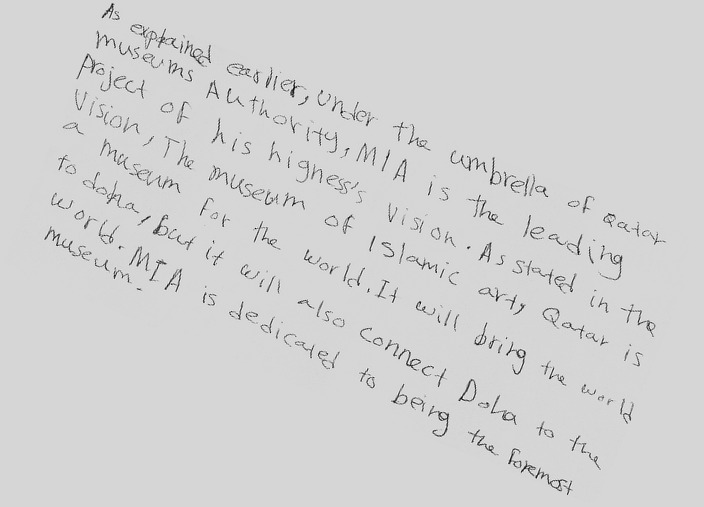 As explained earlier, under the umbrella of Qatar
museums Authority, MIA is the leading
project of his higness's vision. As stated in the
Vision, The museum of Islamic arty Qatar is
a museum for the world. It will bring the world
to doha, but it will also connect Doha to the
world. MIA is dedicated to being the foremost
museum.